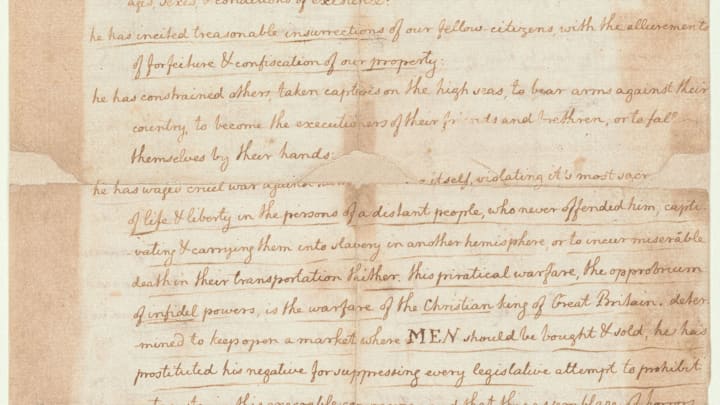 ages, sexes, & conditions of existence:
he has incited treasonable insurrections of our fellow-citizens, with the allurements
of forfeiture & confiscation of our property:
he has constrained others, taken captives on the high seas, to bear arms against their
country, to become the executioners of their friends and brethren, or to fall
themselves by their hands:
he has waged cruel war against itself, violating it's most
of life & liberty in the persons of a distant people, who never offended him, capti-
vating & carrying them into slavery in another hemisphere, or to incur miserable
death in their transportation thither. this piratical warfare, the opprobrium
of infidel powers, is the warfare of the Christian king of Great Britain. deter-
mined to keep open a market where MEN should be bought & sold, he has
prostituted his negative for suppressing every legislative attempt to prohibit
this assemblage of horrors